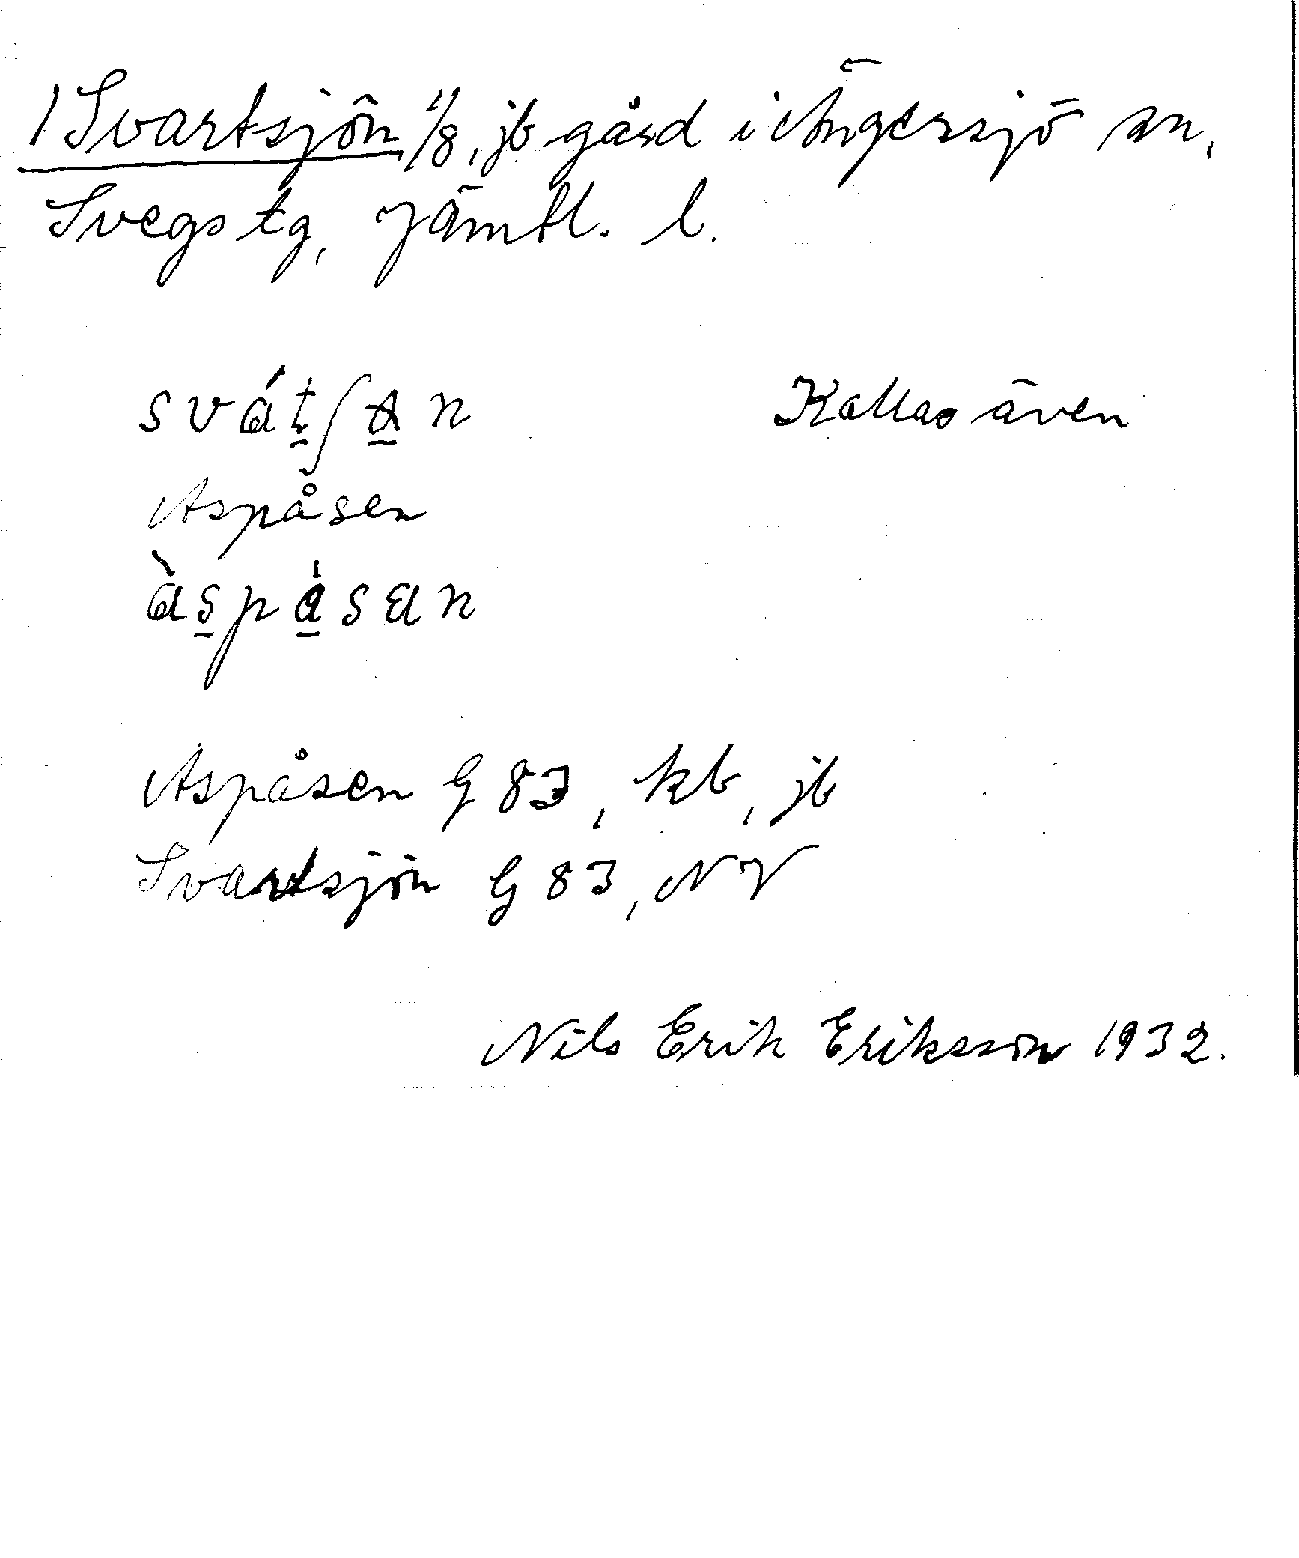 1 Svartsjön 1/8, jb gård i Ängersjö sn,
Svegs tg, Jämtl. l.
svát̠ʃa̠n Kallas även
Aspåsen
às̠pá̠san
Aspåsen G 83, kb, jb
Svartsjön G 83, NV
Nils Erik Eriksson 1932.